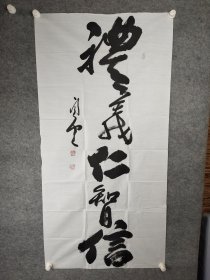 禮義仁智信